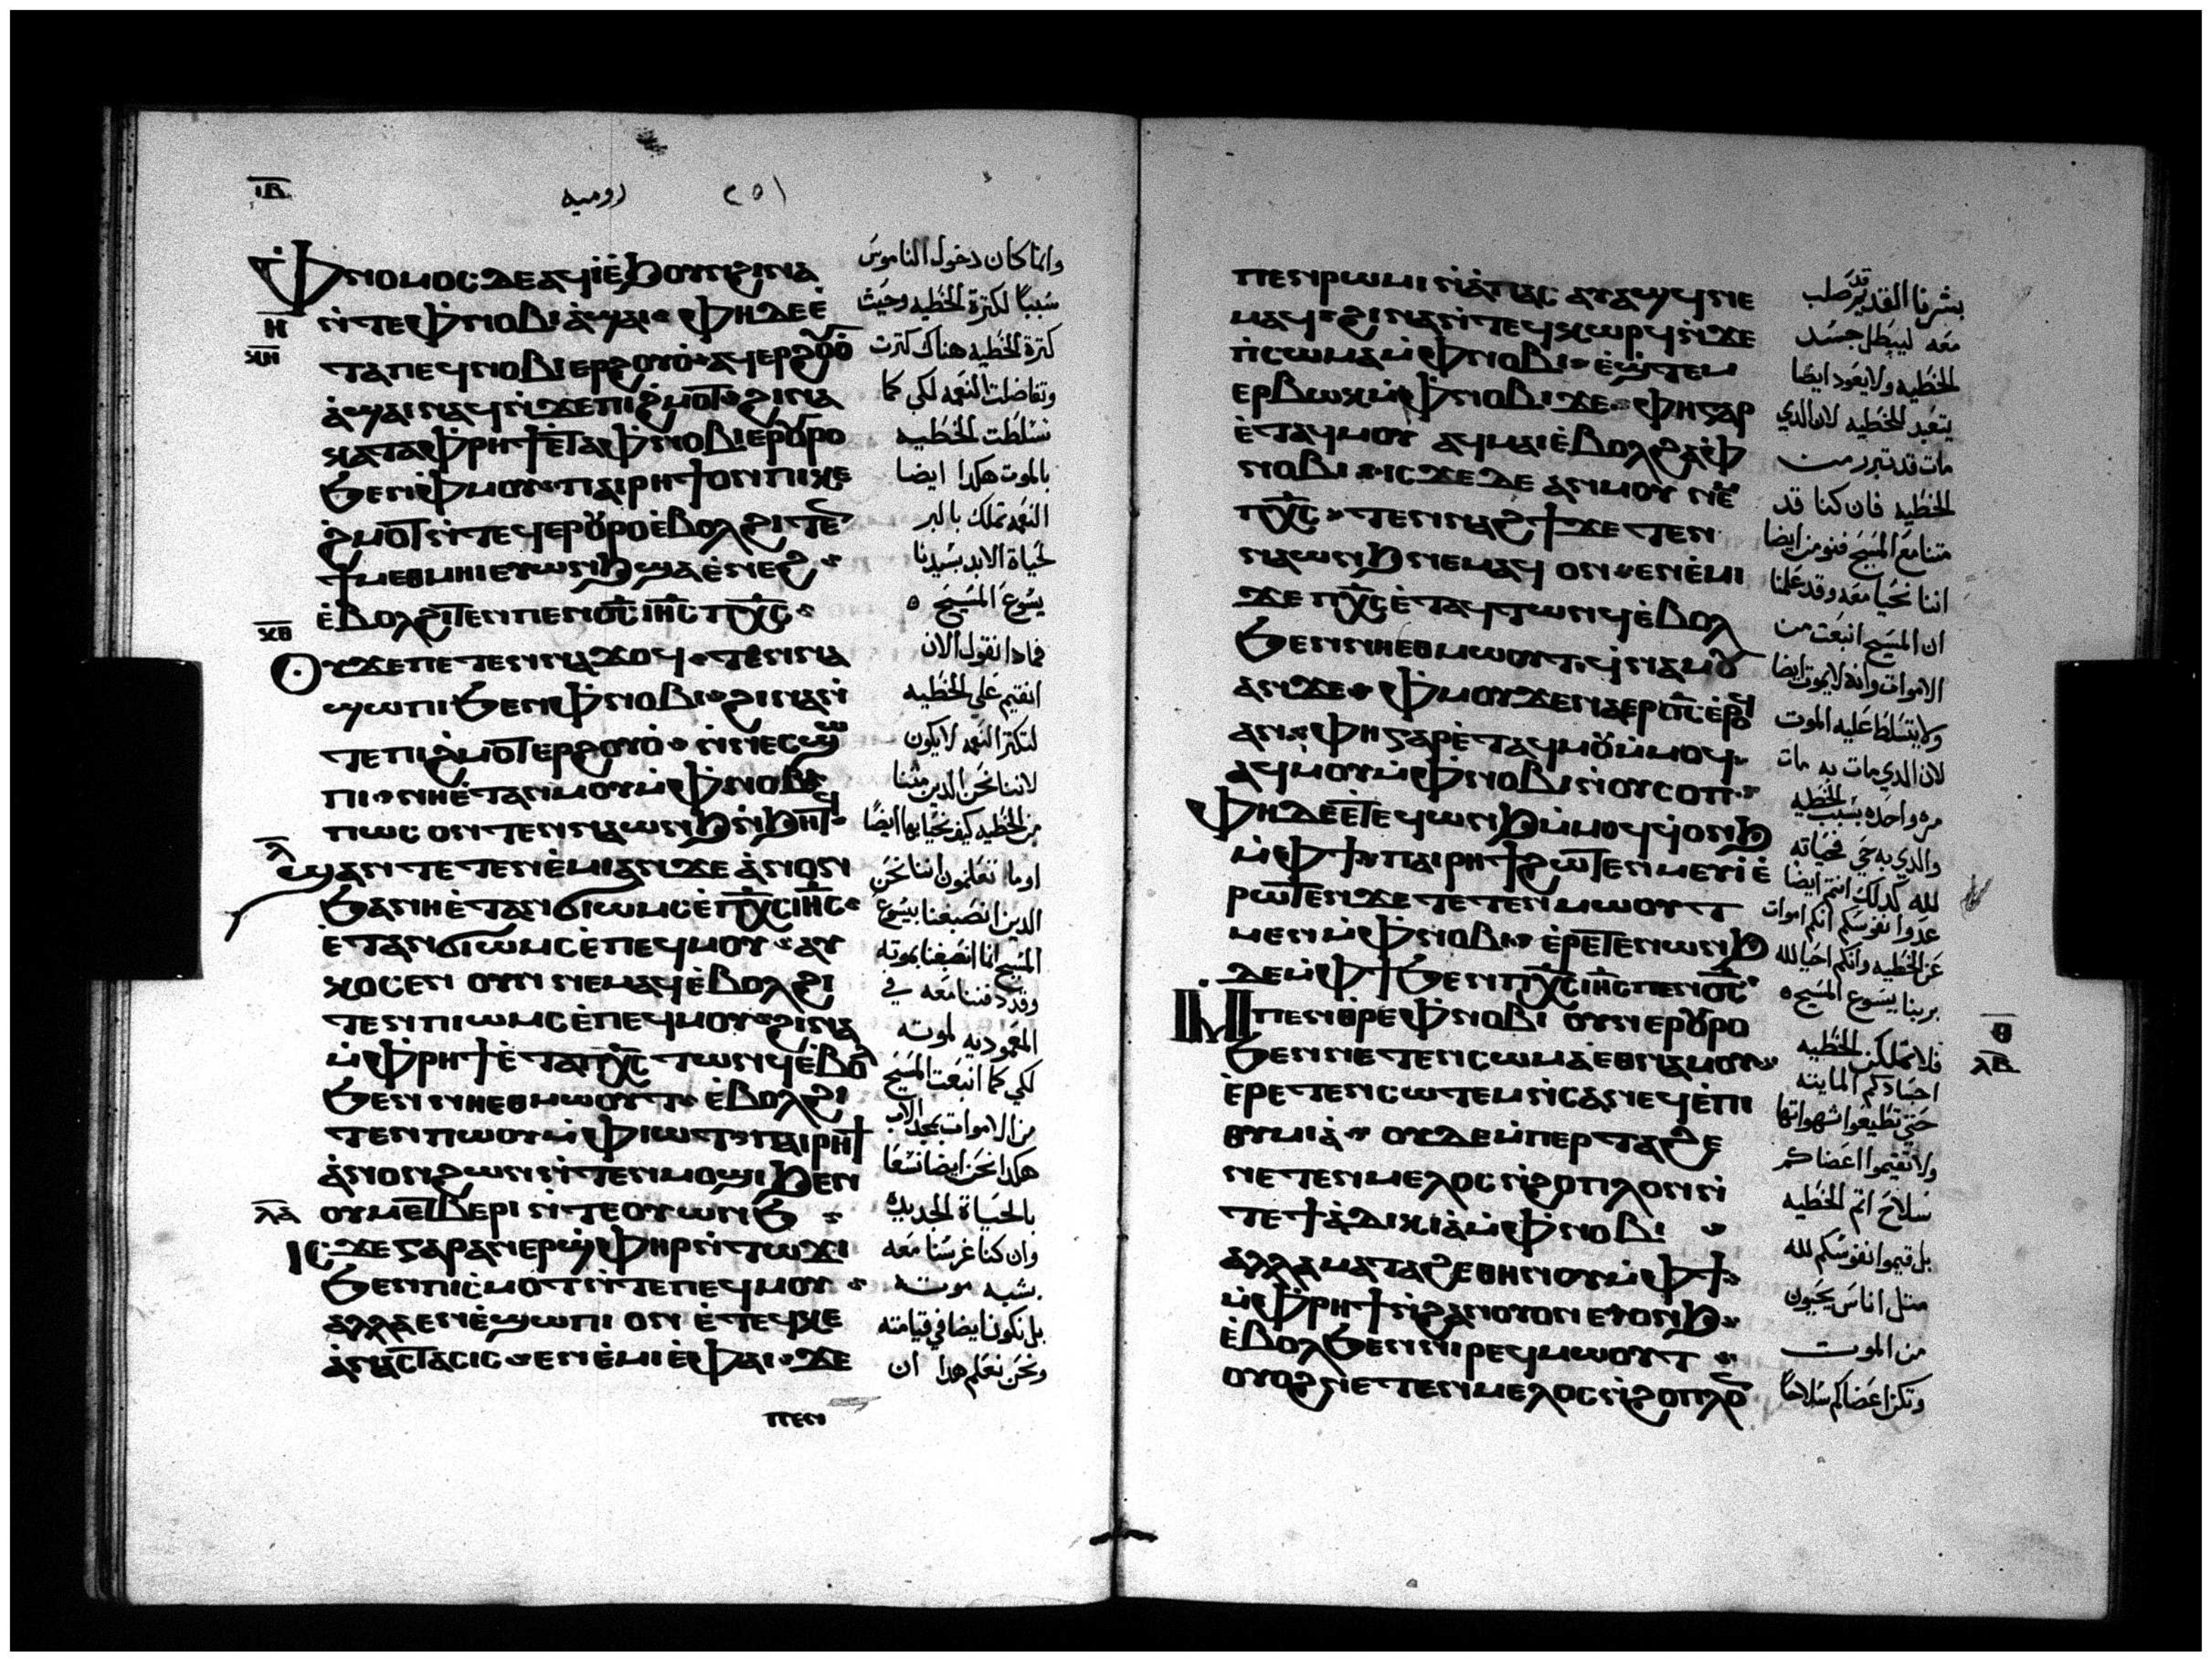 ⲓⲃ
رومیه
٢٥١
ⲫⲛⲟⲙⲟⲥ ⲇⲉ ⲁϥⲓ̀ ⲉ̀ϧⲟⲩⲛ ϩⲓⲛⲁ
ⲛ̀ⲧⲉ ⲫⲛⲟⲃⲓ ⲁ̀ϣⲁⲓ ⲫⲏ ⲇⲉ ⲉ̀
ⲧⲁ ⲡⲉϥⲛⲟⲃⲓ ⲉⲣϩⲟⲩⲟ̀ ⲁϥⲉⲣϩⲟⲩⲟ̀
ⲁ̀ϣⲁⲓ ⲛⲁϥ ⲛ̀ϫⲉ ⲡⲓϩ̀ⲙⲟⲧ ϩⲓⲛⲁ
ⲕⲁⲧⲁ ⲫ̀ⲣⲏϯ ⲉ̀ⲧⲁ ⲫⲛⲟⲃⲓ ⲉⲣⲟⲩⲣⲟ
ϧⲉⲛ ⲫ̀ⲙⲟⲩ ⲡⲁⲓⲣⲏϯ ⲟⲛ ⲡⲓⲕⲉ
ϩ̀ⲙⲟⲧ ⲛ̀ⲧⲉϥⲉⲣⲟⲩⲣⲟ ⲉ̀ⲃⲟⲗ ϩⲓⲧⲉⲛ
ϯⲙⲉⲑⲙⲏⲓ ⲉⲩⲱⲛϧ ϣⲁ ⲉ̀ⲛⲉϩ
ⲉ̀ⲃⲟⲗ ϩⲓⲧⲉⲛ ⲡⲉⲛⲟ̅ⲥ̅ ⲓⲏ̅ⲥ̅ ⲡⲭ̅ⲥ̅
ⲟⲩ ϫⲉ ⲡⲉⲧⲉⲛⲛⲁϫⲟϥ ⲧⲉⲛⲛⲁ
ϣⲱⲡⲓ ϧⲉⲛ ⲫⲛⲟⲃⲓ ϩⲓⲛⲁ ⲛ̀
ⲧⲉ ⲡⲓϩ̀ⲙⲟⲧ ⲉⲣϩⲟⲩⲟ̀ ⲛ̀ⲛⲉⲥϣⲱ
ⲡⲓ ⲛⲏ ⲉ̀ⲧⲁⲛⲙⲟⲩ ⲙ̀ⲫⲛⲟⲃⲓ
ⲡⲱⲥ ⲟⲛ ⲧⲉⲛⲛⲁⲱⲛϧ ⲛ̀ϧⲏⲧϥ
ϣⲁⲛ ⲧⲉⲧⲉⲛⲉ̀ⲙⲓ ⲁⲛ ϫⲉ ⲁ̀ⲛⲟⲛ
ϧⲁ ⲛⲏ ⲉ̀ⲧⲁⲛϭⲓⲱⲙⲥ ⲉ̀ⲡⲭ̅ⲥ̅ ⲓⲏ̅ⲥ̅
ⲉ̀ⲧⲁⲛϭⲓⲱⲙⲥ ⲉ̀ⲡⲉϥⲙⲟⲩ ⲁⲩ
ⲕⲟⲥⲉⲛ ⲟⲩⲛ ⲛⲉⲙⲁϥ ⲉ̀ⲃⲟⲗ ϩⲓ
ⲧⲉⲛ ⲡⲓⲱⲙⲥ ⲉ̀ⲡⲉϥⲙⲟⲩ ϩⲓⲛⲁ
ⲙ̀ⲫ̀ⲣⲏϯ ⲉ̀ⲧⲁ ⲡⲭ̅ⲥ̅ ⲧⲱⲛϥ ⲉ̀ⲃⲟⲗ
ϧⲉⲛ ⲛⲏⲉⲑⲙⲱⲟⲩⲧ ⲉ̀ⲃⲟⲗ ϩⲓ
ⲧⲉⲛ ⲡ̀ⲱⲟⲩ ⲙ̀ⲫ̀ⲓⲱⲧ ⲡⲁⲓⲣⲏϯ
ⲁ̀ⲛⲟⲛ ϩⲱⲛ ⲛ̀ⲧⲉⲛⲙⲟϣⲓ ϧⲉⲛ
ⲟⲩⲙⲉⲧⲃⲉⲣⲓ ⲛ̀ⲧⲉ ⲟⲩⲱⲛϧ
ⲓⲥϫⲉ ⲅⲁⲣ ⲁⲛⲉⲣϣ̀ⲫⲏⲣ ⲛ̀ⲧⲱϫⲓ
ϧⲉⲛ ⲡⲓⲥ̀ⲙⲟⲧ ⲛ̀ⲧⲉ ⲡⲉϥⲙⲟⲩ
ⲁⲗⲗⲁ ⲉⲛⲉ̀ϣⲱⲡⲓ ⲟⲛ ⲉ̀ⲧⲉϥⲕⲉ
ⲁ̀ⲛⲁⲥⲧⲁⲥⲓⲥ ⲉⲛⲉ̀ⲙⲓ ⲉ̀ⲫⲁⲓ ϫⲉ
ⲡⲉⲛ
ⲏ
ⲕⲏ
ⲕⲑ
ⲗ
ⲗⲁ
وانما كان دخول الناموس
سببا لكثرة الخطيه وحيث
كثرة الخطيه هناك كثرت
وتفاضلت النعمه لكي كما
تسلطت الخطيه
بالموت هكدا ايضا
النعمه تملك بالبر
لحياة الابد بسيدنا
يسوع المسيح
فمادا نقول الان
انقيم على الخطيه
لتكثر النعمه لا يكون
لاننا نحن الدين متنا
من الخطيه كيف نحيا بها ايضا
اوما تعلمون اننا نحن
الدين انصبغنا بيسوع
المسيح انما انصبغنا بموته
وقد دفننا معه في
المعموديه لموته
لكي كما انبعث المسيح
من الاموات بمجد الاب
هكدا نحن ايضا نسعا
بالحياة الجديدة
وان كنا غرسنا معه
بشبه موته
بل نكون ايضا في قيامته
ونحن نعلم هدا ان
ⲡⲉⲛⲣⲱⲙⲓ ⲛ̀ⲁ̀ⲡⲁⲥ ⲁⲩⲁϣϥ ⲛⲉ
ⲙⲁϥ ϩⲓⲛⲁ ⲛ̀ⲧⲉϥⲕⲱⲣϥ ⲛ̀ϫⲉ
ⲡⲓⲥⲱⲙⲁ ⲙ̀ⲫⲛⲟⲃⲓ ⲉ̀ϣ̀ⲧⲉⲙ
ⲉⲣⲃⲱⲕ ⲙ̀ⲫⲛⲟⲃⲓ ϫⲉ ⲫⲏ ⲅⲁⲣ
ⲉ̀ⲧⲁϥⲙⲟⲩ ⲁϥⲙⲁⲓ ⲉ̀ⲃⲟⲗ ϩⲁ ⲫ
ⲛⲟⲃⲓ ⲓⲥϫⲉ ⲇⲉ ⲁⲛⲙⲟⲩ ⲛⲉⲙ
ⲡⲭ̅ⲥ̅ ⲧⲉⲛⲛⲁϩϯ ϫⲉ ⲧⲉⲛ
ⲛⲁⲱⲛϧ ⲛⲉⲙⲁϥ ⲟⲛ ⲉⲛⲉ̀ⲙⲓ
ϫⲉ ⲡⲭ̅ⲥ̅ ⲉ̀ⲧⲁϥⲧⲱⲛϥ ⲉ̀ⲃⲟⲗ
ϧⲉⲛ ⲛⲏⲉⲑⲙⲱⲟⲩⲧ ϥ̀ⲛⲁⲙⲟⲩ
ⲁⲛ ϫⲉ ⲫ̀ⲙⲟⲩ ϫⲉ ⲛⲁⲉⲣⲟ̅ⲥ̅ ⲉ̀ⲣⲟϥ
ⲁⲛ ⲫⲏ ⲅⲁⲣ ⲉ̀ⲧⲁϥⲙⲟⲩ ⲙ̀ⲙⲟϥ
ⲁϥⲙⲟⲩ ⲙ̀ⲫⲛⲟⲃⲓ ⲛ̀ⲟⲩⲥⲟⲡ
ⲫⲏ ⲇⲉ ⲉⲧⲉϥⲱⲛϧ ⲙ̀ⲙⲟϥ ϥ̀ⲟⲛϧ
ⲙ̀ⲫϯ ⲡⲁⲓⲣⲏϯ ϩⲱⲧⲉⲛ ⲙⲉⲩⲓ ⲉ̀
ⲣⲱⲧⲉⲛ ϫⲉ ⲧⲉⲧⲉⲛⲙⲱⲟⲩⲧ
ⲙⲉⲛ ⲙ̀ⲫⲛⲟⲃⲓ ⲉ̀ⲣⲉⲧⲉⲛⲱⲛϧ
ⲇⲉ ⲙ̀ⲫϯ ϧⲉⲛ ⲡⲭ̅ⲥ̅ ⲓⲏ̅ⲥ̅ ⲡⲉⲛⲟ̅ⲥ̅
ⲙ̀ⲡⲉⲛⲑ̀ⲣⲉ ⲫⲛⲟⲃⲓ ⲟⲩⲛ ⲉⲣⲟⲩⲣⲟ
ϧⲉⲛ ⲛⲉⲧⲉⲛⲥⲱⲙⲁ ⲉⲑⲛⲁⲙⲟⲩ
ⲉ̀ⲣⲉⲧⲉⲛⲥⲱⲧⲉⲙ ⲛ̀ⲥⲁ ⲛⲉϥⲉ̀ⲡⲓ
ⲑⲩⲙⲓⲁ̀ ⲟⲩⲇⲉ ⲙ̀ⲡⲉⲣⲧⲁϩⲉ
ⲛⲉⲧⲉⲛⲙⲉⲗⲟⲥ ⲛ̀ϩⲟⲡⲗⲟⲛ ⲛ̀
ⲧⲉ ϯⲁ̀ⲇⲓⲕⲓⲁ̀ ⲙ̀ⲫⲛⲟⲃⲓ
ⲁⲗⲗⲁ ⲙⲁⲧⲁϩⲉ ⲑⲏⲛⲟⲩ ⲙ̀ⲫϯ
ⲙ̀ⲫ̀ⲣⲏϯ ⲛ̀ϩⲁⲛⲟⲩⲟⲛ ⲉⲩⲟⲛϧ
ⲉ̀ⲃⲟⲗ ϧⲉⲛ ⲛⲓⲣⲉϥⲙⲱⲟⲩⲧ
ⲟⲩⲟϩ ⲛⲉⲧⲉⲛⲙⲉⲗⲟⲥ ⲛ̀ϩⲟⲡⲗⲟⲛ
ⲑ
ⲗⲃ
بشرنا القديم قد صلب
معه ليبطل جسد
الخطيه ولا يعود ايضا
يتعبد للخطيه لان الدي
مات قد تبرر من
الخطيه فان كنا قد
متنا مع المسيح فنومن ايضا
اننا نحيا معه وقد علمنا
ان المسيح انبعث من
الاموات وانه لا يموت ايضا
ولا يتسلط عليه الموت
لان الدي مات به مات
مره واحده بسبب الخطيه
والدي به حي فحياته
لله كدلك انتم ايضا
عدوا نفوسكم انكم اموات
عن الخطيه وانكم احيا لله
بربنا يسوع المسيح
فلا تملكن الخطيه
اجسادكم المايته
حتى تطيعوا شهواتها
ولا تقيموا اعضاكم
سلاح اتم الخطيه
بل قيموا نفوسكم لله
متل اناس يحيون
من الموت
وتكن اعضاكم سلاحا